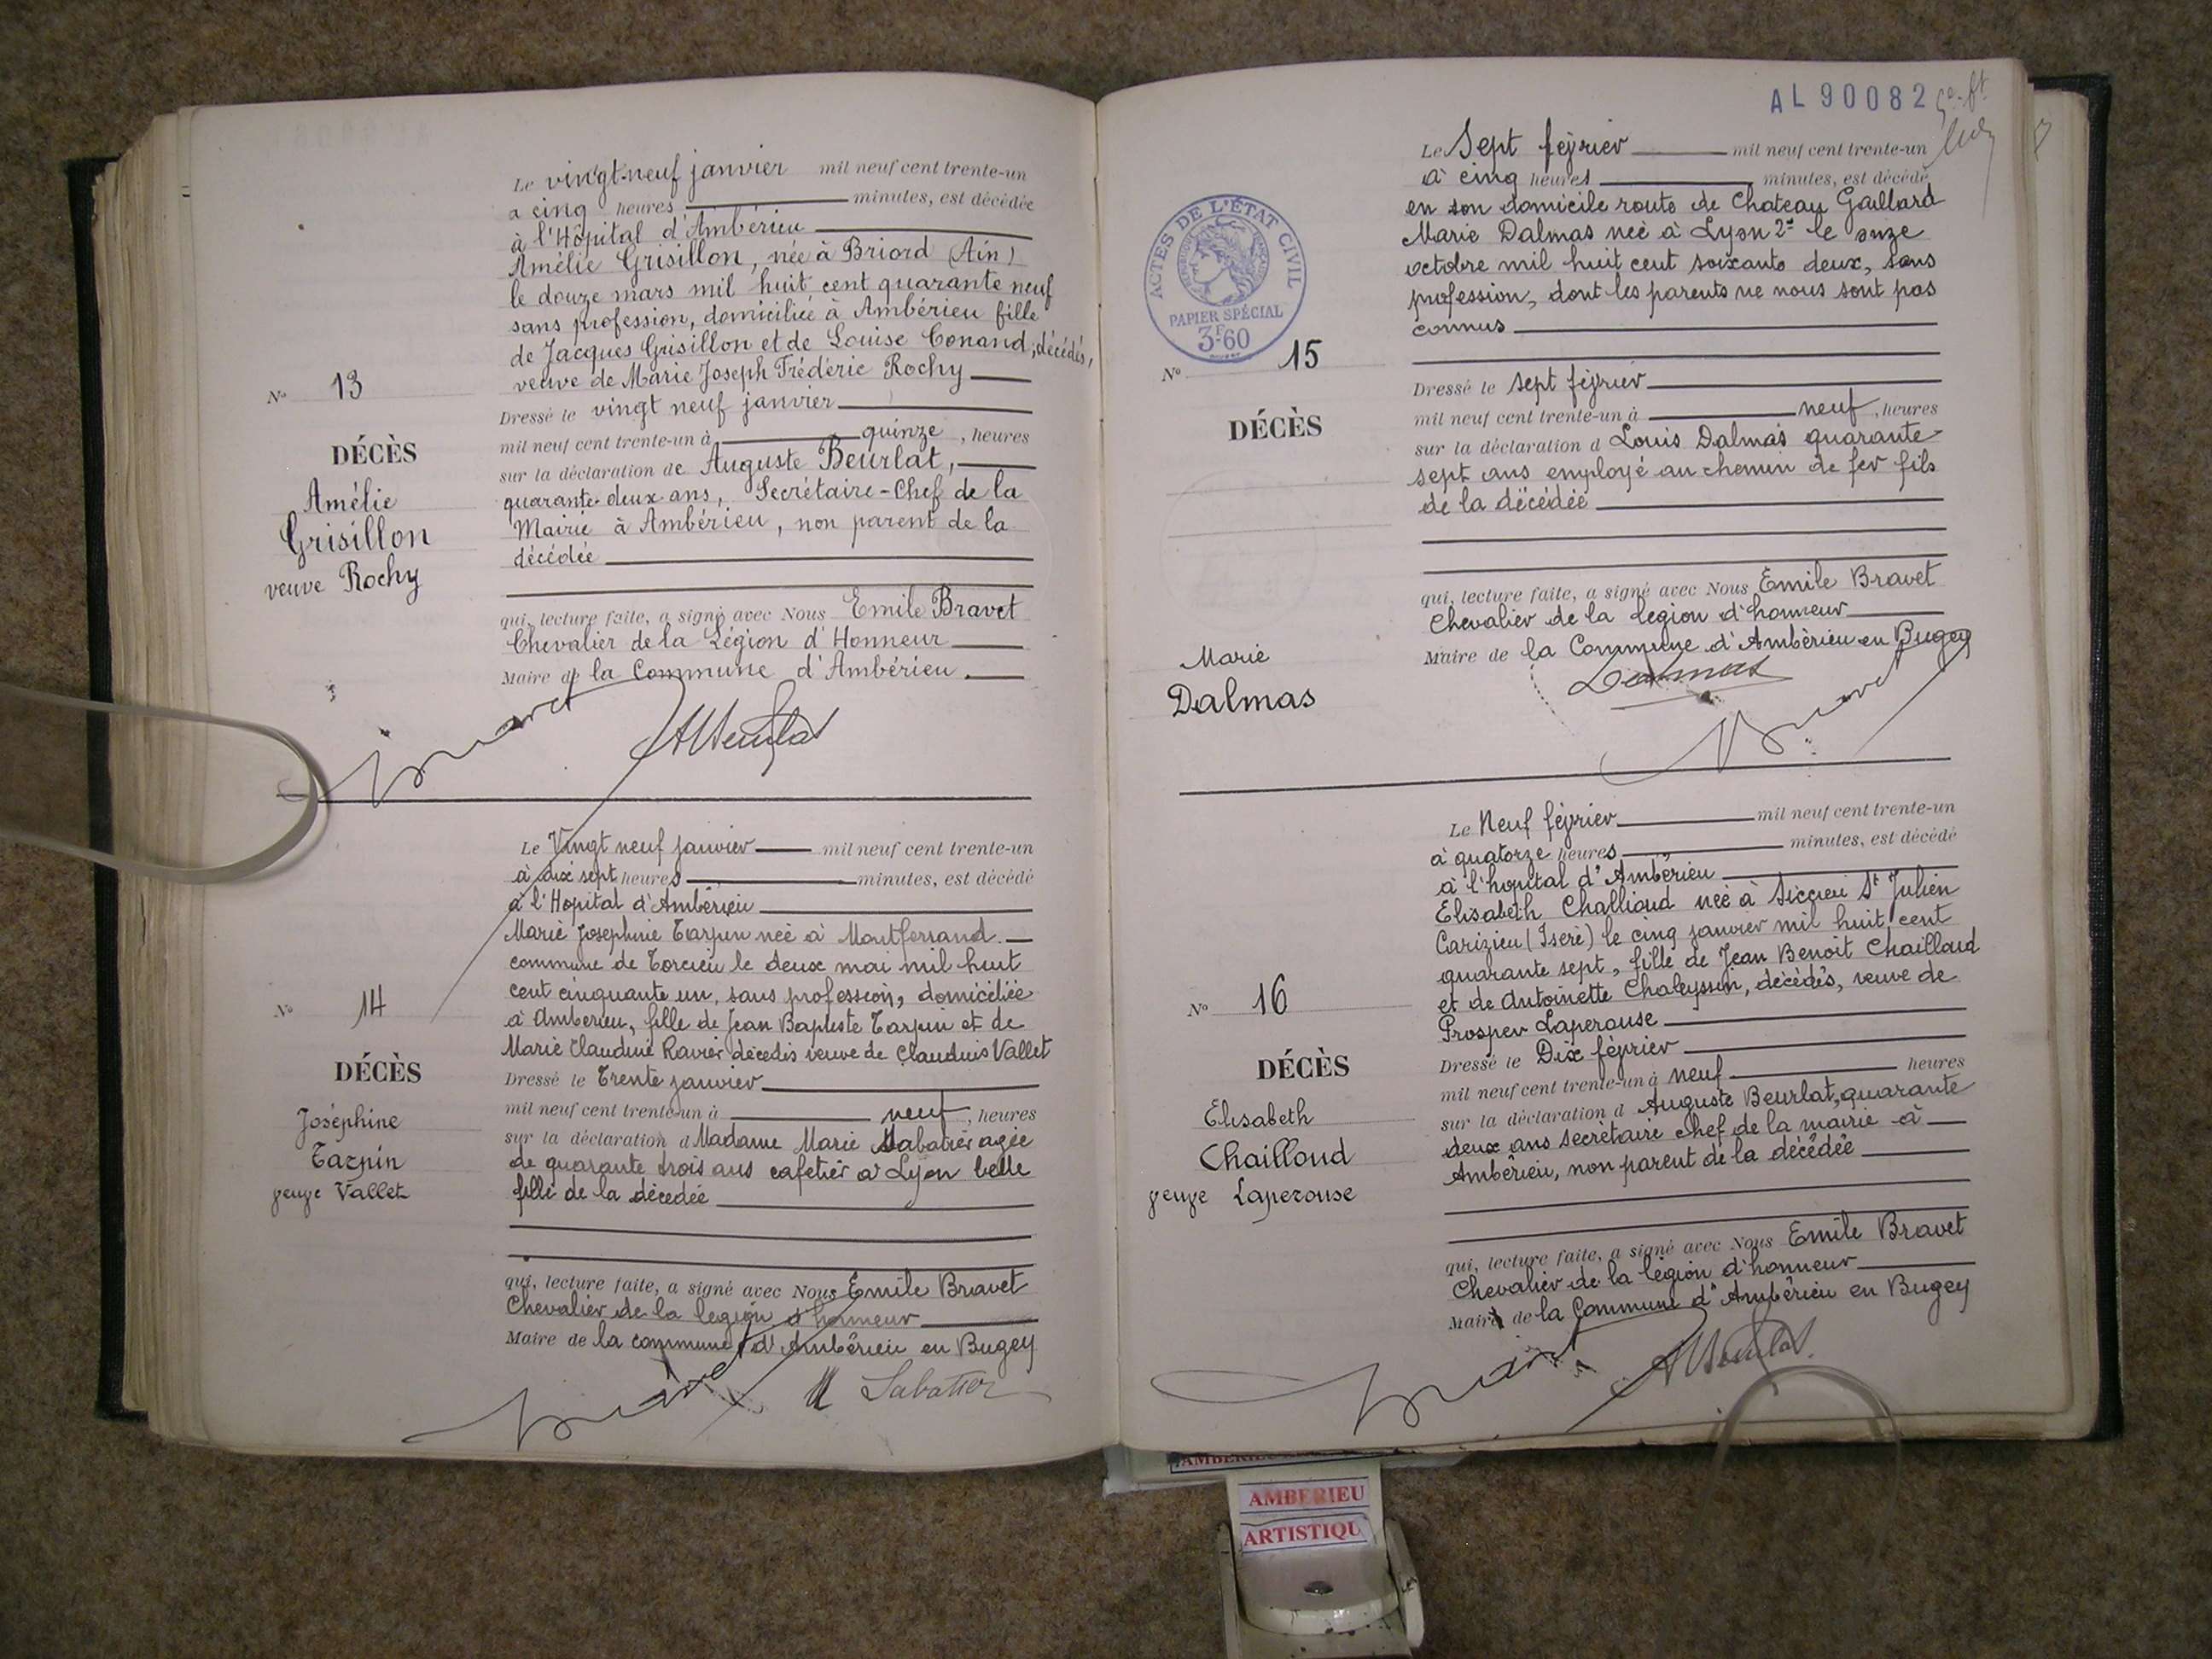 Le vingt-neuf janvier mil neuf cent trente-un
a cinq heures minutes, est décédée
à l'Hôpital d'Ambérieu
Amélie Grisillon, née à Briord (Ain)
le douze mars mil huit cent quarante neuf
sans profession, domiciliée à Ambérieu fille
de Jacques Grisillon et de Louise Conand, décédés,
veuve de Marie Joseph Frédéric Rochy
N° 13
DÉCÈS
Amélie
Grisillon
veuve Rochy
Dressé le vingt neuf janvier
mil neuf cent trente-un à quinze, heures
sur la déclaration de Auguste Beurlat,
quarante-deux ans, Secrétaire-Chef de la
Mairie à Ambérieu, non parent de la
décédée
qui, lecture faite, a signé avec Nous Emile Bravet
Chevalier de la Légion d'Honneur
Maire de la Commune d'Ambérieu.
Bravet
ABeurlat
Le Vingt neuf janvier mil neuf cent trente-un
à dix sept heures minutes, est décédé
à l'Hopital d'Ambérieu
Marie Josephine Tarpin née à Montferrand
commune de Torcieu le deux mai mil huit
cent cinquante un, sans profession, domiciliée
à Amberieu, fille de Jean Baptiste Tarpin et de
Marie Claudine Ravier décédés veuve de Claudius Vallet
N° 14
DÉCÈS
Joséphine
Tarpin
veuve Vallet
Dressé le Trente janvier
mil neuf cent trente-un à neuf, heures
sur la déclaration d Madame Marie Sabatier agée
de quarante trois ans cafetier à Lyon belle
fille de la décédée
qui, lecture faite, a signé avec Nous Emile Bravet
Chevalier de la legion d'honneur
Maire de la commune d'Ambérieu en Bugey
Bravet
M Sabatier
AL90082
Le Sept février mil neuf cent trente-un
à cinq heures minutes, est décédé
en son domicile route de Chateau Gaillard
Marie Dalmas née à Lyon 2e le onze
octobre mil huit cent soixante deux, sans
profession, dont les parents ne nous sont pas
connus
ACTES DE L'ÉTAT CIVIL
PAPIER SPÉCIAL
3F60
N° 15
DÉCÈS
Marie
Dalmas
Dressé le sept février
mil neuf cent trente-un à neuf, heures
sur la déclaration d Louis Dalmas quarante
sept ans employé au chemin de fer fils
de la décédée
qui, lecture faite, a signé avec Nous Emile Bravet
Chevalier de la legion d'honneur
Maire de la Commune d'Ambérieu en Bugey
Dalmas
Bravet
Le Neuf février mil neuf cent trente-un
à quatorze heures minutes, est décédé
à l'hopital d'Ambérieu
Elisabeth Challioud née à Siccieu St Julien
Carizieu (Isère) le cinq janvier mil huit cent
quarante sept, fille de Jean Benoit Chailloud
et de Antoinette Chaleyssin, décédés, veuve de
Prosper Laperouse
N° 16
DÉCÈS
Elisabeth
Chailloud
veuve Laperouse
Dressé le Dix février
mil neuf cent trente-un à neuf heures
sur la déclaration d Auguste Beurlat, quarante
deux ans secrétaire chef de la mairie à
Ambérieu, non parent de la décédée
qui, lecture faite, a signé avec Nous Emile Bravet
Chevalier de la legion d'honneur
Maire de la Commune d'Ambérieu en Bugey
Bravet
ABeurlat
AMBERIEU
ARTISTIQU